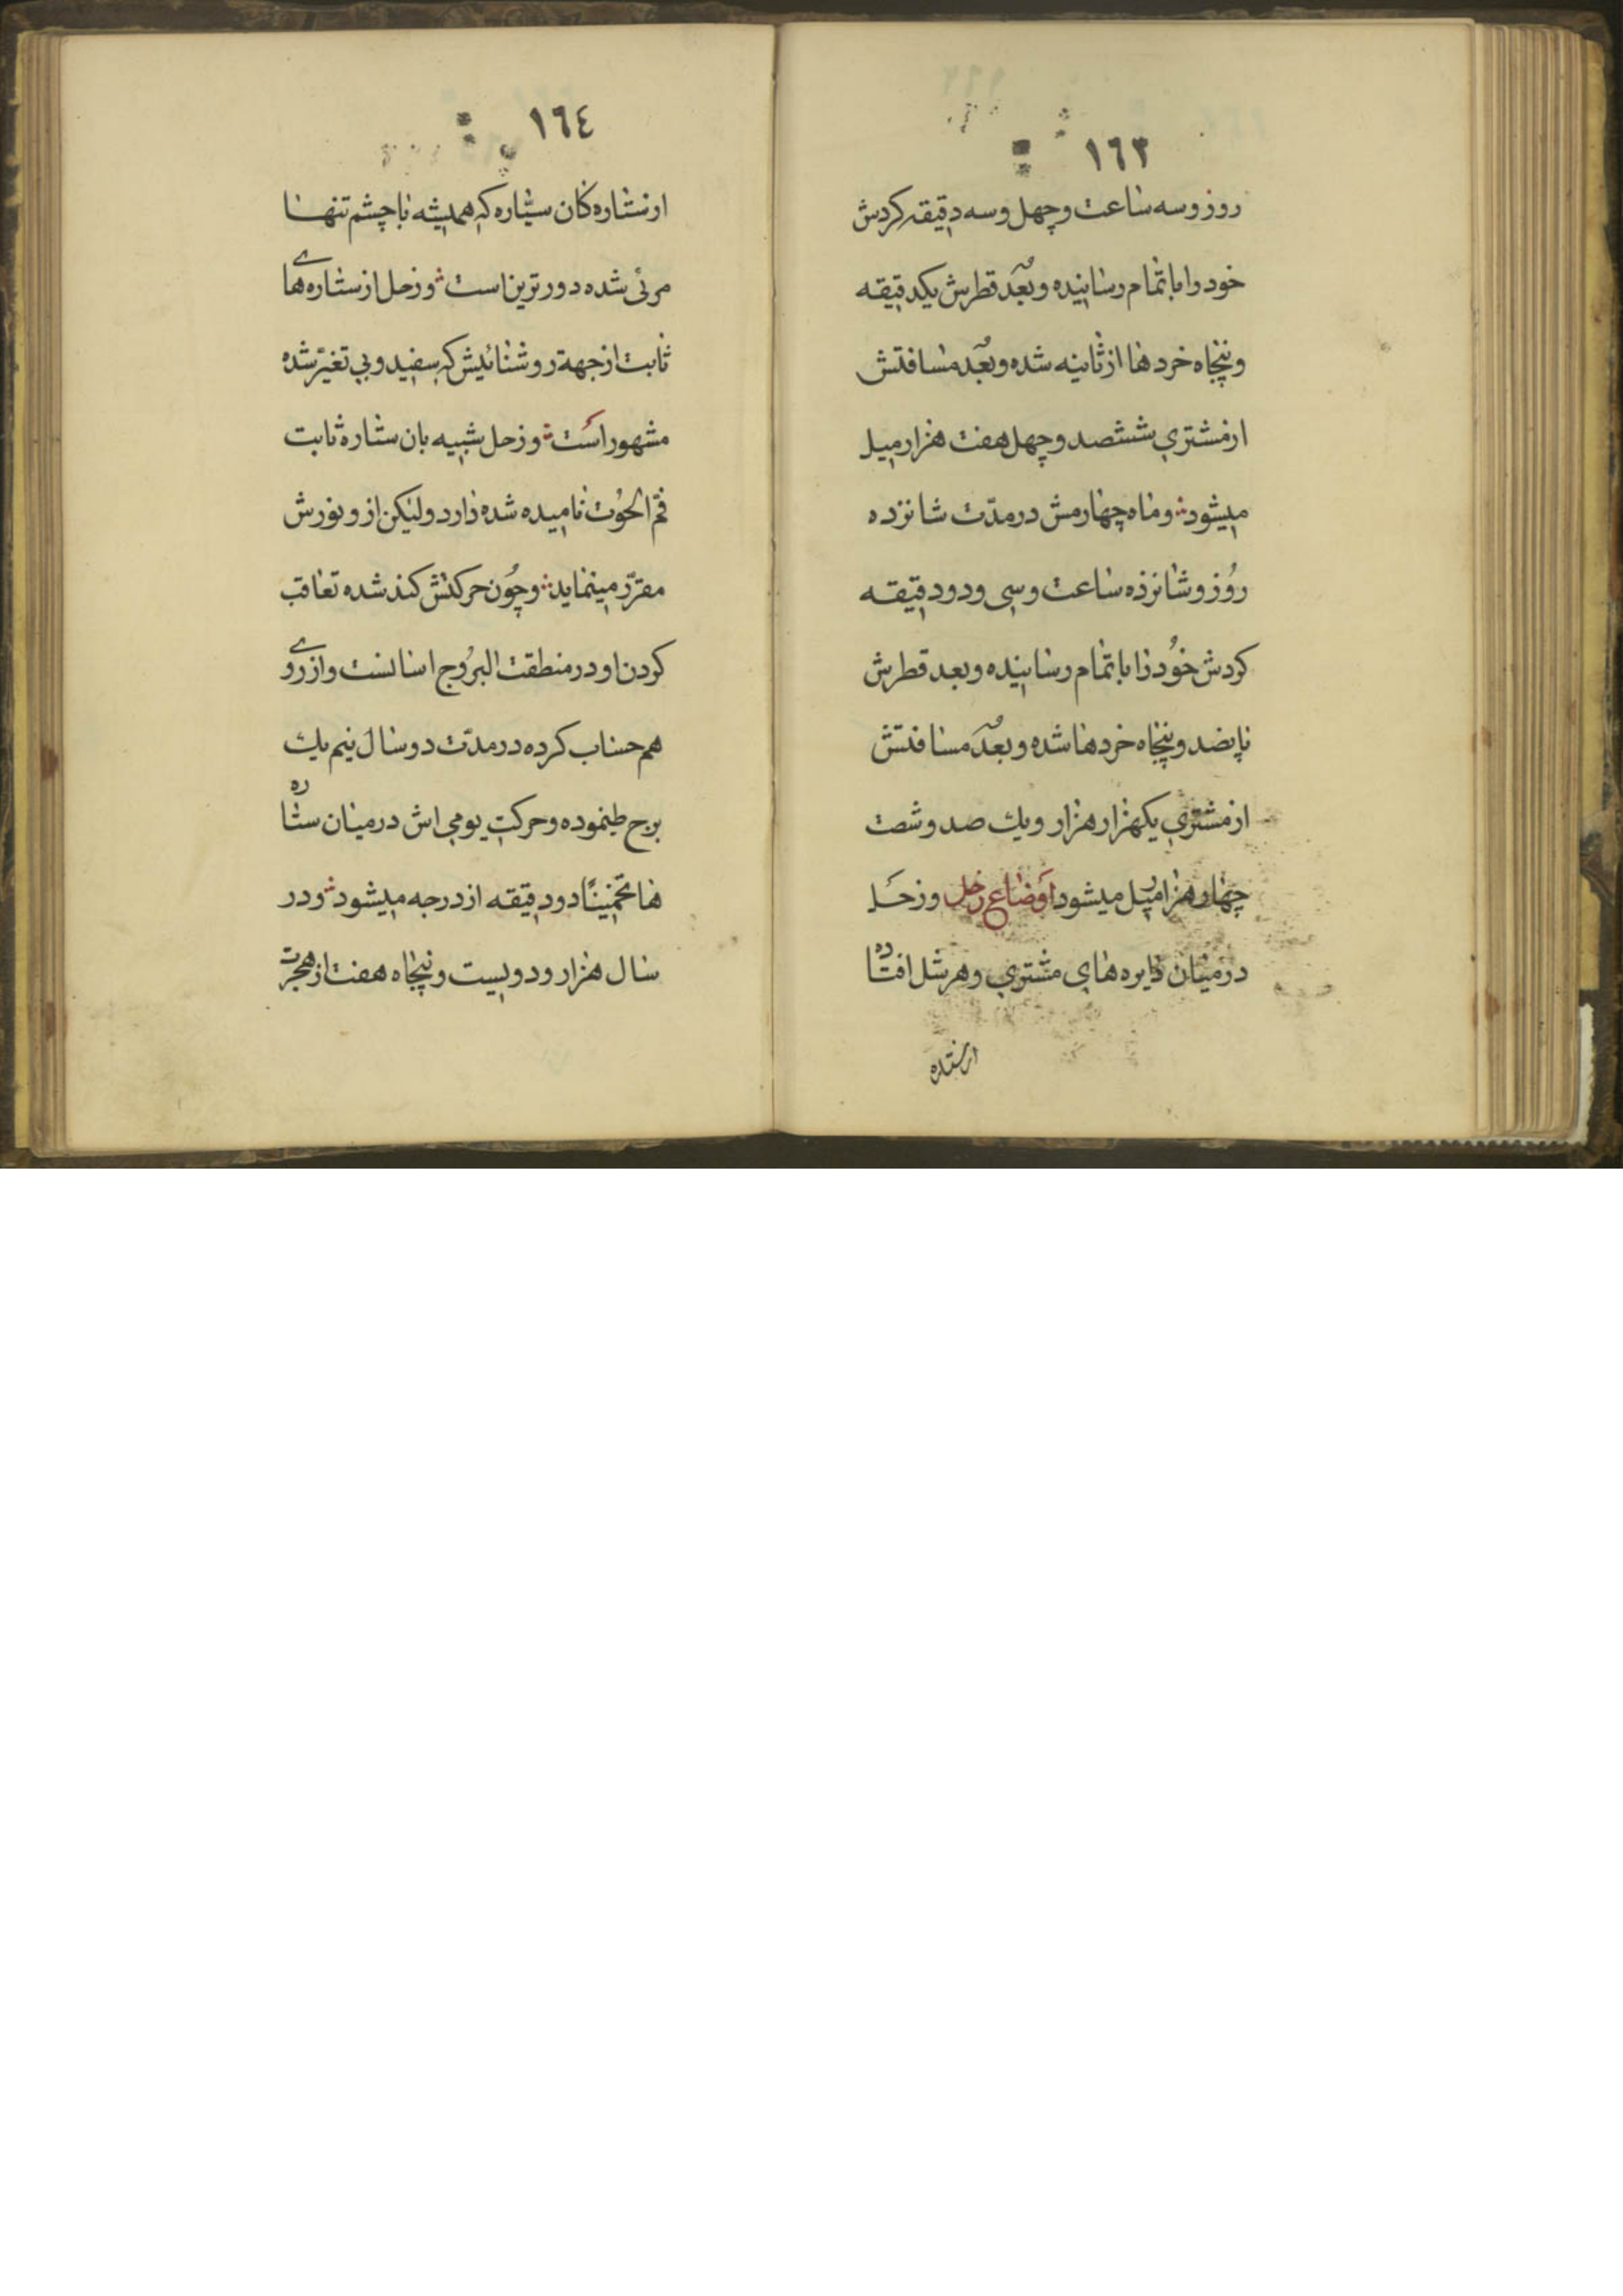 ١٦٣
روز و سه ساعت و چهل و سه دقیقه کردش
خود را باتمام رسانیده و بعد قطرش یکدقیقه
و پنجاه خردها از ثانیه شده و بعد مسافتش
از مشتری ششصد و چهل هفت هزار میل
میشود و ماه چهارمش در مدّت شانزده
رُوز و شانزده ساعت و سی و دو دقیقه
کردش خُود را باتمام رسانیده و بعد قطرش
پانصد و پنجاه خردها شده و بعد مسافتش
از مشتری یکهزار هزار و یك صد و شصت
چهار هزار میل میشود اوضاع زحل و زحل
در میان دایره های مشتری و هرشل افتاده
از ستاره
١٦٤
از ستاره کان سیّاره که همیشه با چشم تنها
مرئی شده دورترین است و زحل از ستاره های
ثابت از جهة روشنائیش که سفید و بی تغیّر شده
مشهور است و زحل شبیه بان ستاره ثابت
فم الحُوت نامیده شده دارد ولیکن از و نورش
مقرّر مینماید و چُون حرکتش کند شده تعاقب
کردن او در منطقت البرُوج اسانست و از روی
هم حساب کرده در مدّت دو سال نیم یك
برج طی نموده و حرکت یومی اش در میان ستاره
ها تخمینًا دو دقیقه از درجه میشود و در
سال هزار و دویست و پنجاه هفت از هجرت